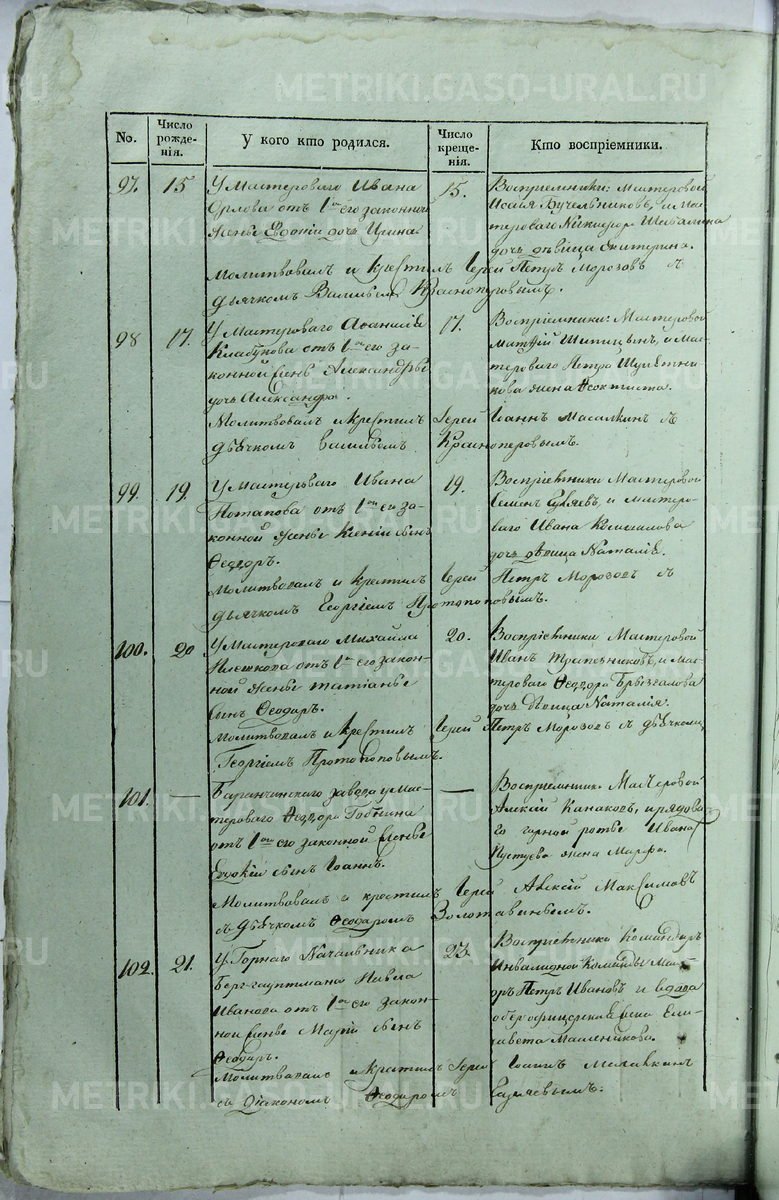 METRIKI.GASO-URAL.RU
No.
Число рожденія.
У кого кто родился.
Число крещенія.
Кто воспріемники.
97.
15
У Мастероваго Ивана
Орлова отъ 1го его законной
жены дочь Ирина.
15.
Воспріемники: Мастеровой
Исаія и Мас-
тероваго Никифора
дочь дѣвица Екатерина.
Молитвовалъ и крестилъ Іерей Петръ Морозовъ съ
дьячкомъ Васильемъ Красноперовымъ.
98
17.
У Мастероваго Аѳанасія
отъ 1го его за-
конной жены Александры
дочь Александра.
17.
Воспріемники: Мастеровой
Матѳей Шипицынъ, и Мас-
тероваго Петра
жена Ѳеоктиста.
Молитвовалъ и крестилъ Іерей Іоаннъ съ
дьячкомъ Васильемъ Красноперовымъ.
99.
19.
У Мастероваго Ивана
Потапова отъ 1го его за-
конной жены Ксеніи сынъ
Ѳеодоръ.
19.
Воспріемники Мастеровой
Семенъ и Мастеро-
ваго Ивана
дочь дѣвица Наталія.
Молитвовалъ и крестилъ Іерей Петръ Морозовъ съ
дьячкомъ Георгіемъ Протопоповымъ.
100.
20
У Мастероваго Михайла
отъ 1го его закон-
ной жены Татіаны
сынъ Ѳеодоръ.
20.
Воспріемники Мастеровой
Иванъ Трапезниковъ, и Мас-
тероваго Ѳеодора Брызгалова
дочь дѣвица Наталія.
Молитвовалъ и крестилъ Іерей Петръ Морозовъ съ дьячкомъ
Георгіемъ Протопоповымъ.
101.
—
Баранчинскаго завода у Мас-
тероваго Ѳеодора
отъ 1го его законной жены
Евдокіи сынъ Іоаннъ.
—
Воспріемники Мастеровой
Алексій Канаковъ, и рядова-
го горной роты Ивана
жена Марѳа.
Молитвовалъ и крестилъ Іерей Алексій Максимовъ
съ дьячкомъ Ѳеодоромъ
102.
21.
У Горнаго Начальника
Берг-гауптмана Павла
Иванова отъ 1го его закон-
ной жены Маріи сынъ
Ѳеодоръ.
23.
Воспріемники Командиръ
Инвалидной Команды Маі-
оръ Петръ Ивановъ и вдова
оберофицерская жена Ели-
савета Масленикова.
Молитвовалъ и крестилъ Іерей Іоаннъ
съ Діакономъ Ѳеодоромъ